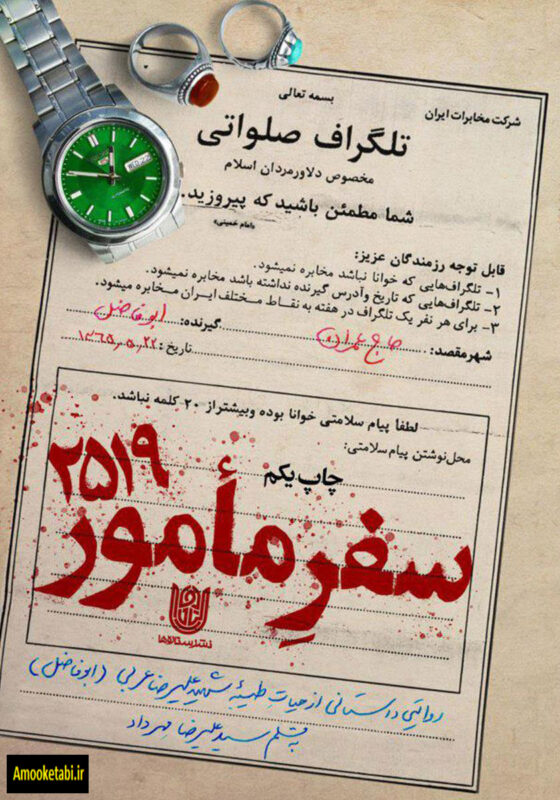 بسمه تعالی
شرکت مخابرات ایران
تلگراف صلواتی
مخصوص دلاورمردان اسلام
شما مطمئن باشید که پیروزید.
«امام خمینی»
قابل توجه رزمندگان عزیز:
۱- تلگراف‌هایی که خوانا نباشد مخابره نمیشود.
۲- تلگراف‌هایی که تاریخ وآدرس گیرنده نداشته باشد مخابره نمیشود.
۳- برای هر نفر یک تلگراف در هفته به نقاط مختلف ایران مخابره میشود.
شهرمقصد: حاج عمران گیرنده: ابوفاضل
تاریخ: ۱۳۶۵,۵,۲۲
لطفا پیام سلامتی خوانا بوده وبیشتراز ۲۰ کلمه نباشد.
محل‌نوشتن پیام سلامتی:
چاپ یکم
سفرِ مأمور ۲۵۱۹
نشرستاره‌ها
روایتی داستانی از حیات طیبهٔ شهید علیرضا عربی (ابوفاضل)
بقلم سید علیرضا مهرداد
WED 22
5
Amooketabi.ir